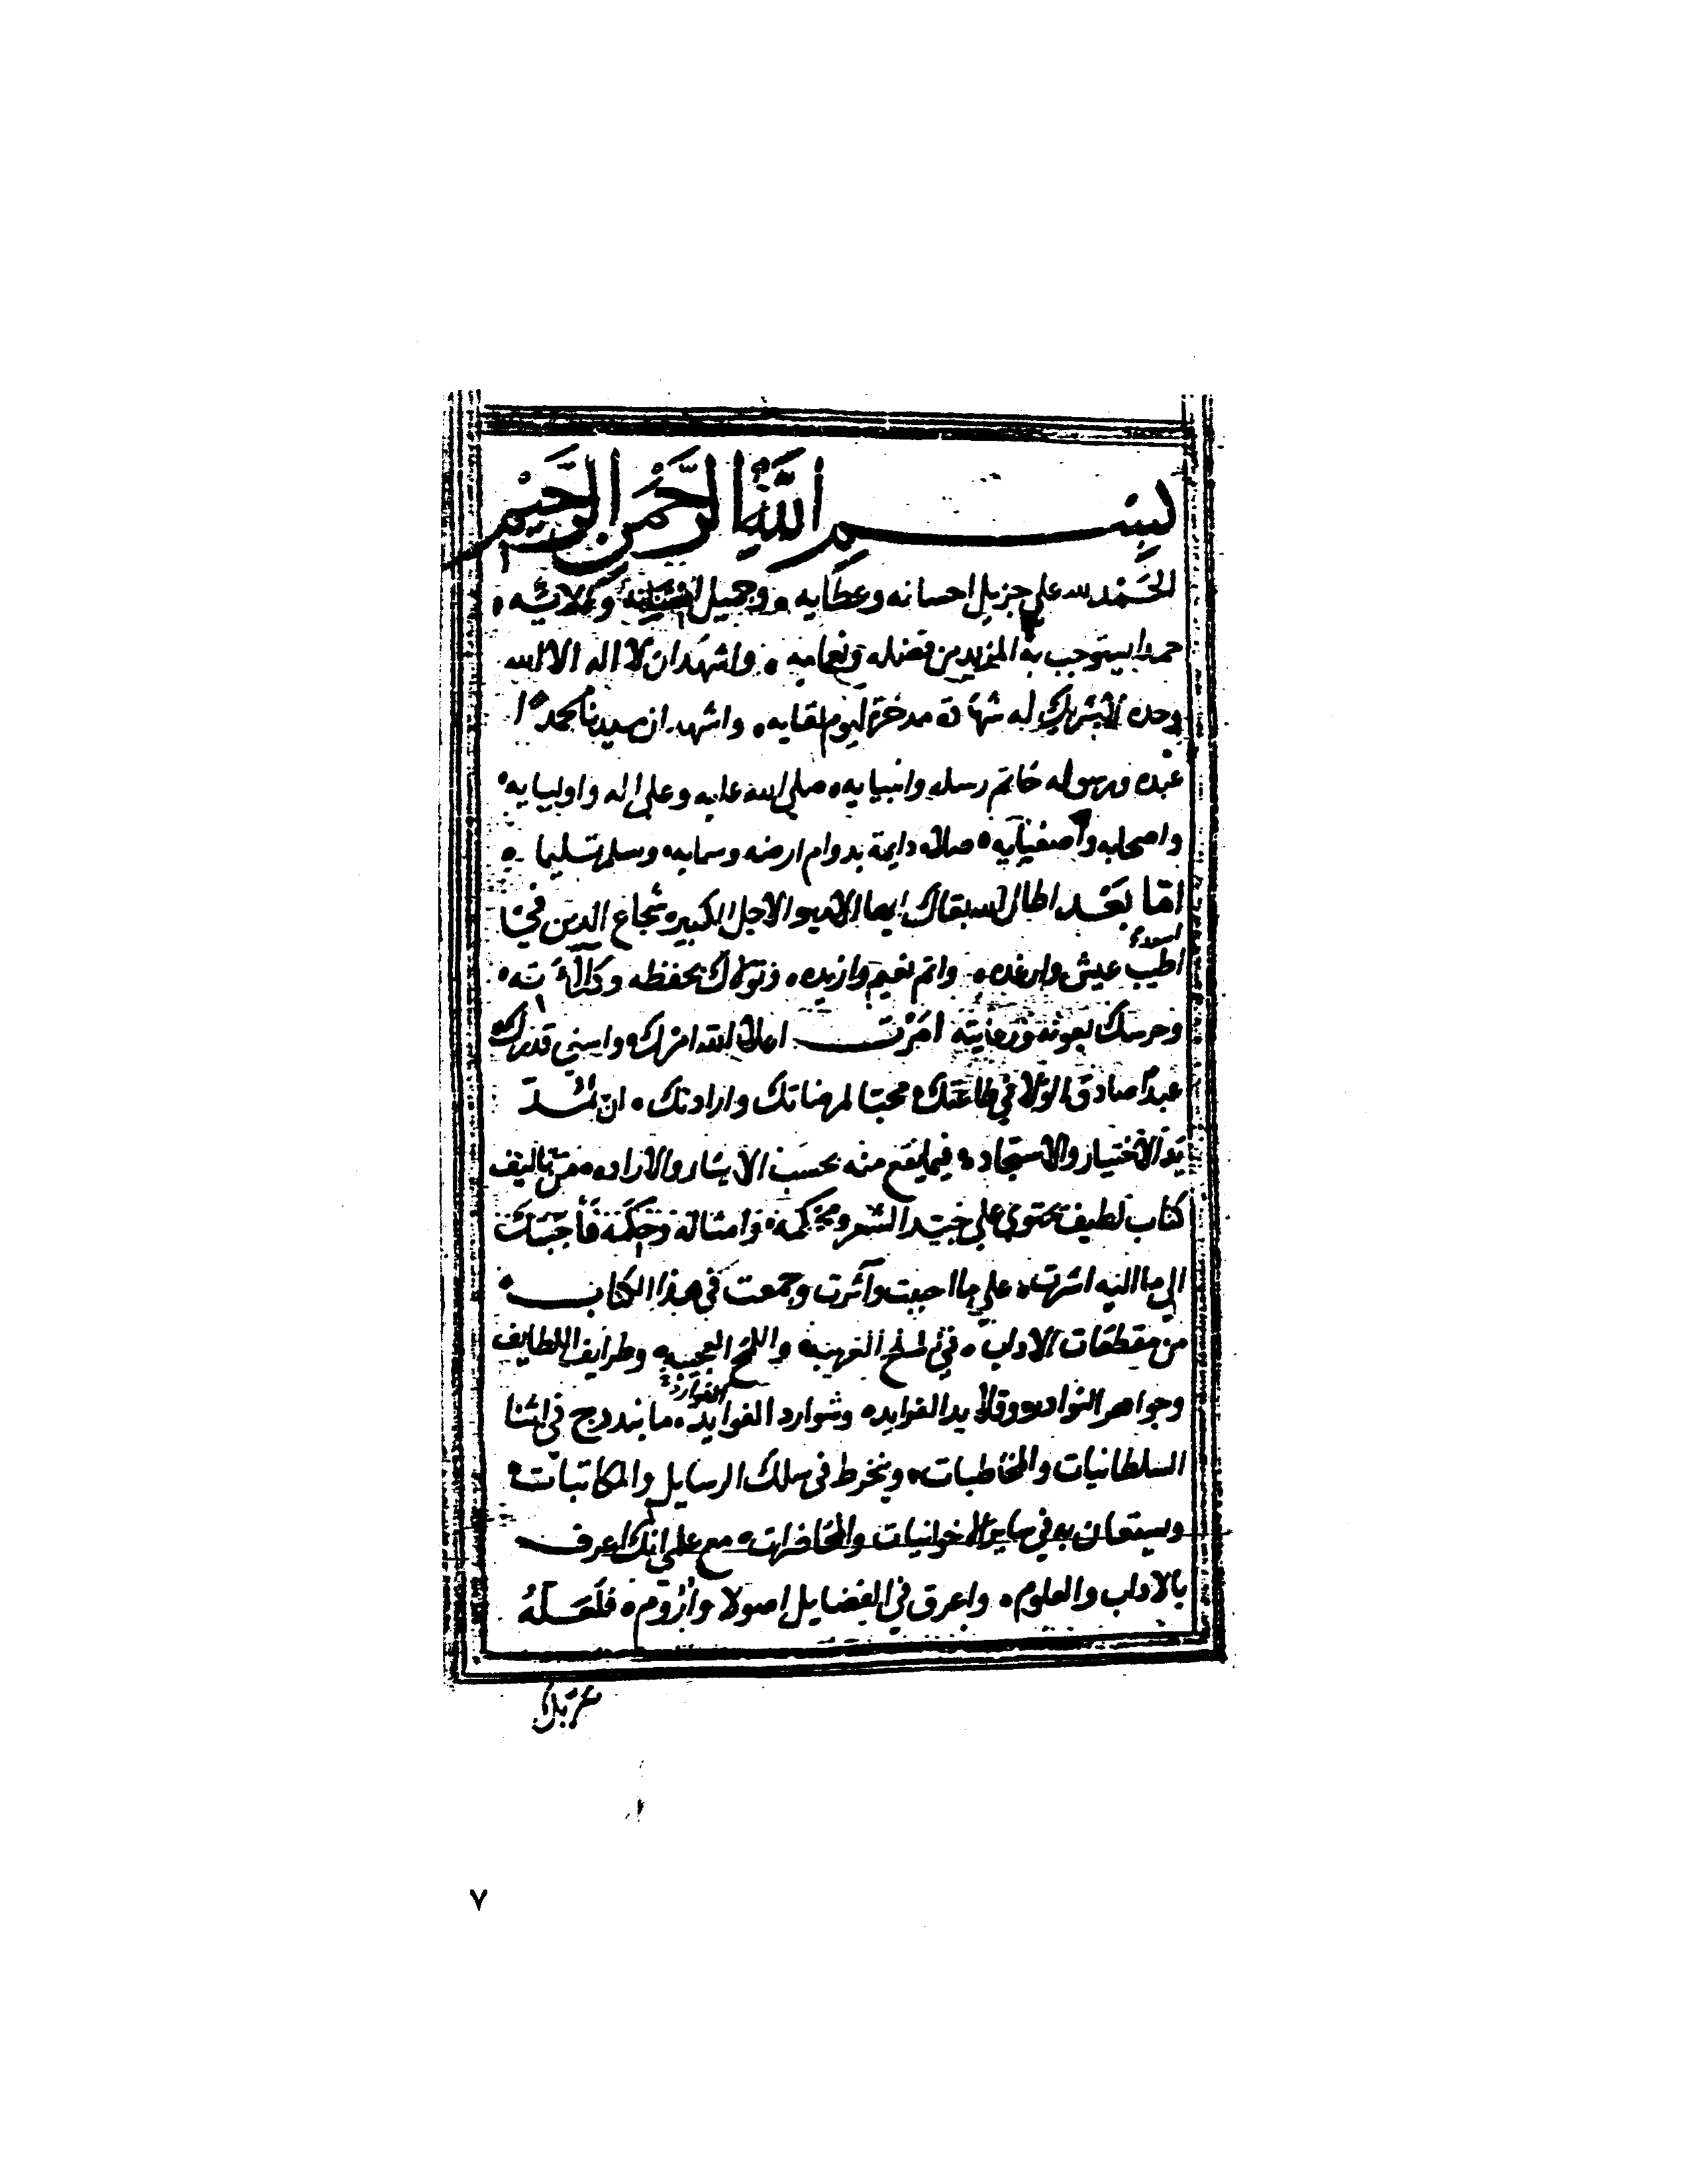 بِسْمِ اللَّهِ الرَّحْمَنِ الرَّحِيمِ
الحمد لله على جزيل احسانه وعطايه ۰ وجميل وكلائه ۰
حمدا يستوجب به المزيد من فضله ونعمايه ۰ واشهد ان لا اله الا الله
وحده لا شريك له شهادة مدخرة ليوم لقايه ۰ واشهد ان سيدنا محمدا
عبده ورسوله خاتم رسله وانبيايه ۰ صلى الله عليه وعلى اله واوليايه ۰
واصحابه وأصفيآيه ۰ صلاة دايمة بدوام ارضه وسمايه ۰ وسلم تسليما ۰
امّا بَعْد اطال الله بقاك ايها الامير الاجل الكبير شجاع الدين في
اسعد
اطيب عيش وارغده ۰ واتم نعيم وازيده ۰ وتولاك بحفظه وكلاءته ۰
وحرسك بعونه ورعايته أمَرْت اعلى الله امرك ۰ واسنى قدرك
عبدا صادق الولا في طاعتك ۰ محبا لمرضاتك وارادتك ۰ ان يمد
يَد الاختيار والاستجاده ۰ فيما يقع منه بحسب الايثار والاراده ۰ من تاليف
كتاب لطيف يحتوى على جيد الشعر ومحكمه ۰ وامثاله وحكمه فأجبتك
الى ما اليه اشرت ۰ على ما احببت وآثرت وجمعت في هذا الكتاب ۰
من مقطعات الاداب ۰ في الملح الغريبه ۰ واللمح العجيبه ۰ وطرايف اللطايف
الفوارد
وجواهر النوادر وقلايد الفوايد ۰ وشوارد الفوايد ۰ ما يندرج في اثنا
السلطانيات والمخاطبات ۰ وينخرط في سلك الرسايل والمكاتبات ۰
ويستعان به في ساير الاخوانيات والمحاضرات ۰ مع علمي انك اعرف
بالاداب والعلوم ۰ واعرق في الفضايل اصولا وأُرُوم ۰ فلعَلهُ
٧